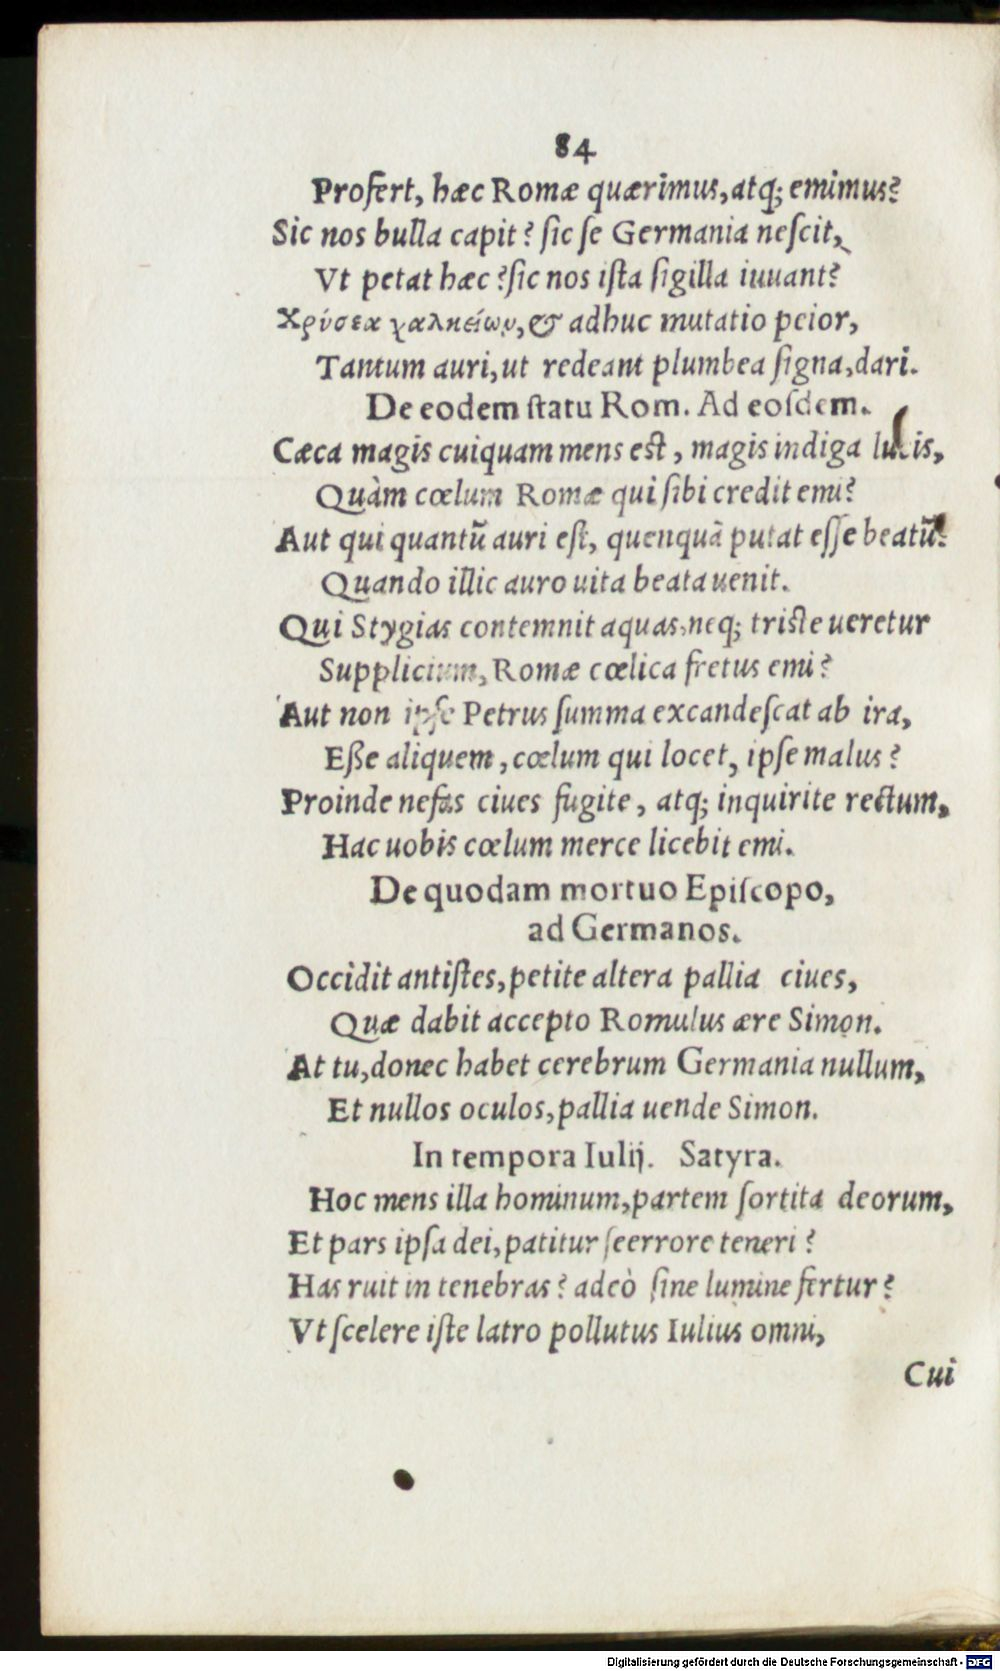 84
Profert, hæc Romæ quærimus, atq; emimus?
Sic nos bulla capit? sic se Germania nescit,
Vt petat hæc? sic nos ista sigilla iuuant?
Χρύσεα χαλκείων, & adhuc mutatio peior,
Tantum auri, ut redeant plumbea signa, dari.
De eodem statu Rom. Ad eosdem.
Cæca magis cuiquam mens est, magis indiga lucis,
Quàm cœlum Romæ qui sibi credit emi?
Aut qui quantũ auri est, quenquã putat esse beatũ?
Quando illic auro uita beata uenit.
Qui Stygias contemnit aquas, neq; triste ueretur
Supplicium, Romæ cœlica fretus emi?
Aut non ipse Petrus summa excandescat ab ira,
Eße aliquem, cœlum qui locet, ipse malus?
Proinde nefas ciues fugite, atq; inquirite rectum,
Hac uobis cœlum merce licebit emi.
De quodam mortuo Episcopo,
ad Germanos.
Occidit antistes, petite altera pallia ciues,
Quæ dabit accepto Romulus ære Simon.
At tu, donec habet cerebrum Germania nullum,
Et nullos oculos, pallia uende Simon.
In tempora Iulij. Satyra.
Hoc mens illa hominum, partem sortita deorum,
Et pars ipsa dei, patitur se errore teneri?
Has ruit in tenebras? adeò sine lumine fertur?
Vt scelere iste latro pollutus Iulius omni,
Cui
Digitalisierung gefördert durch die Deutsche Forschungsgemeinschaft - DFG